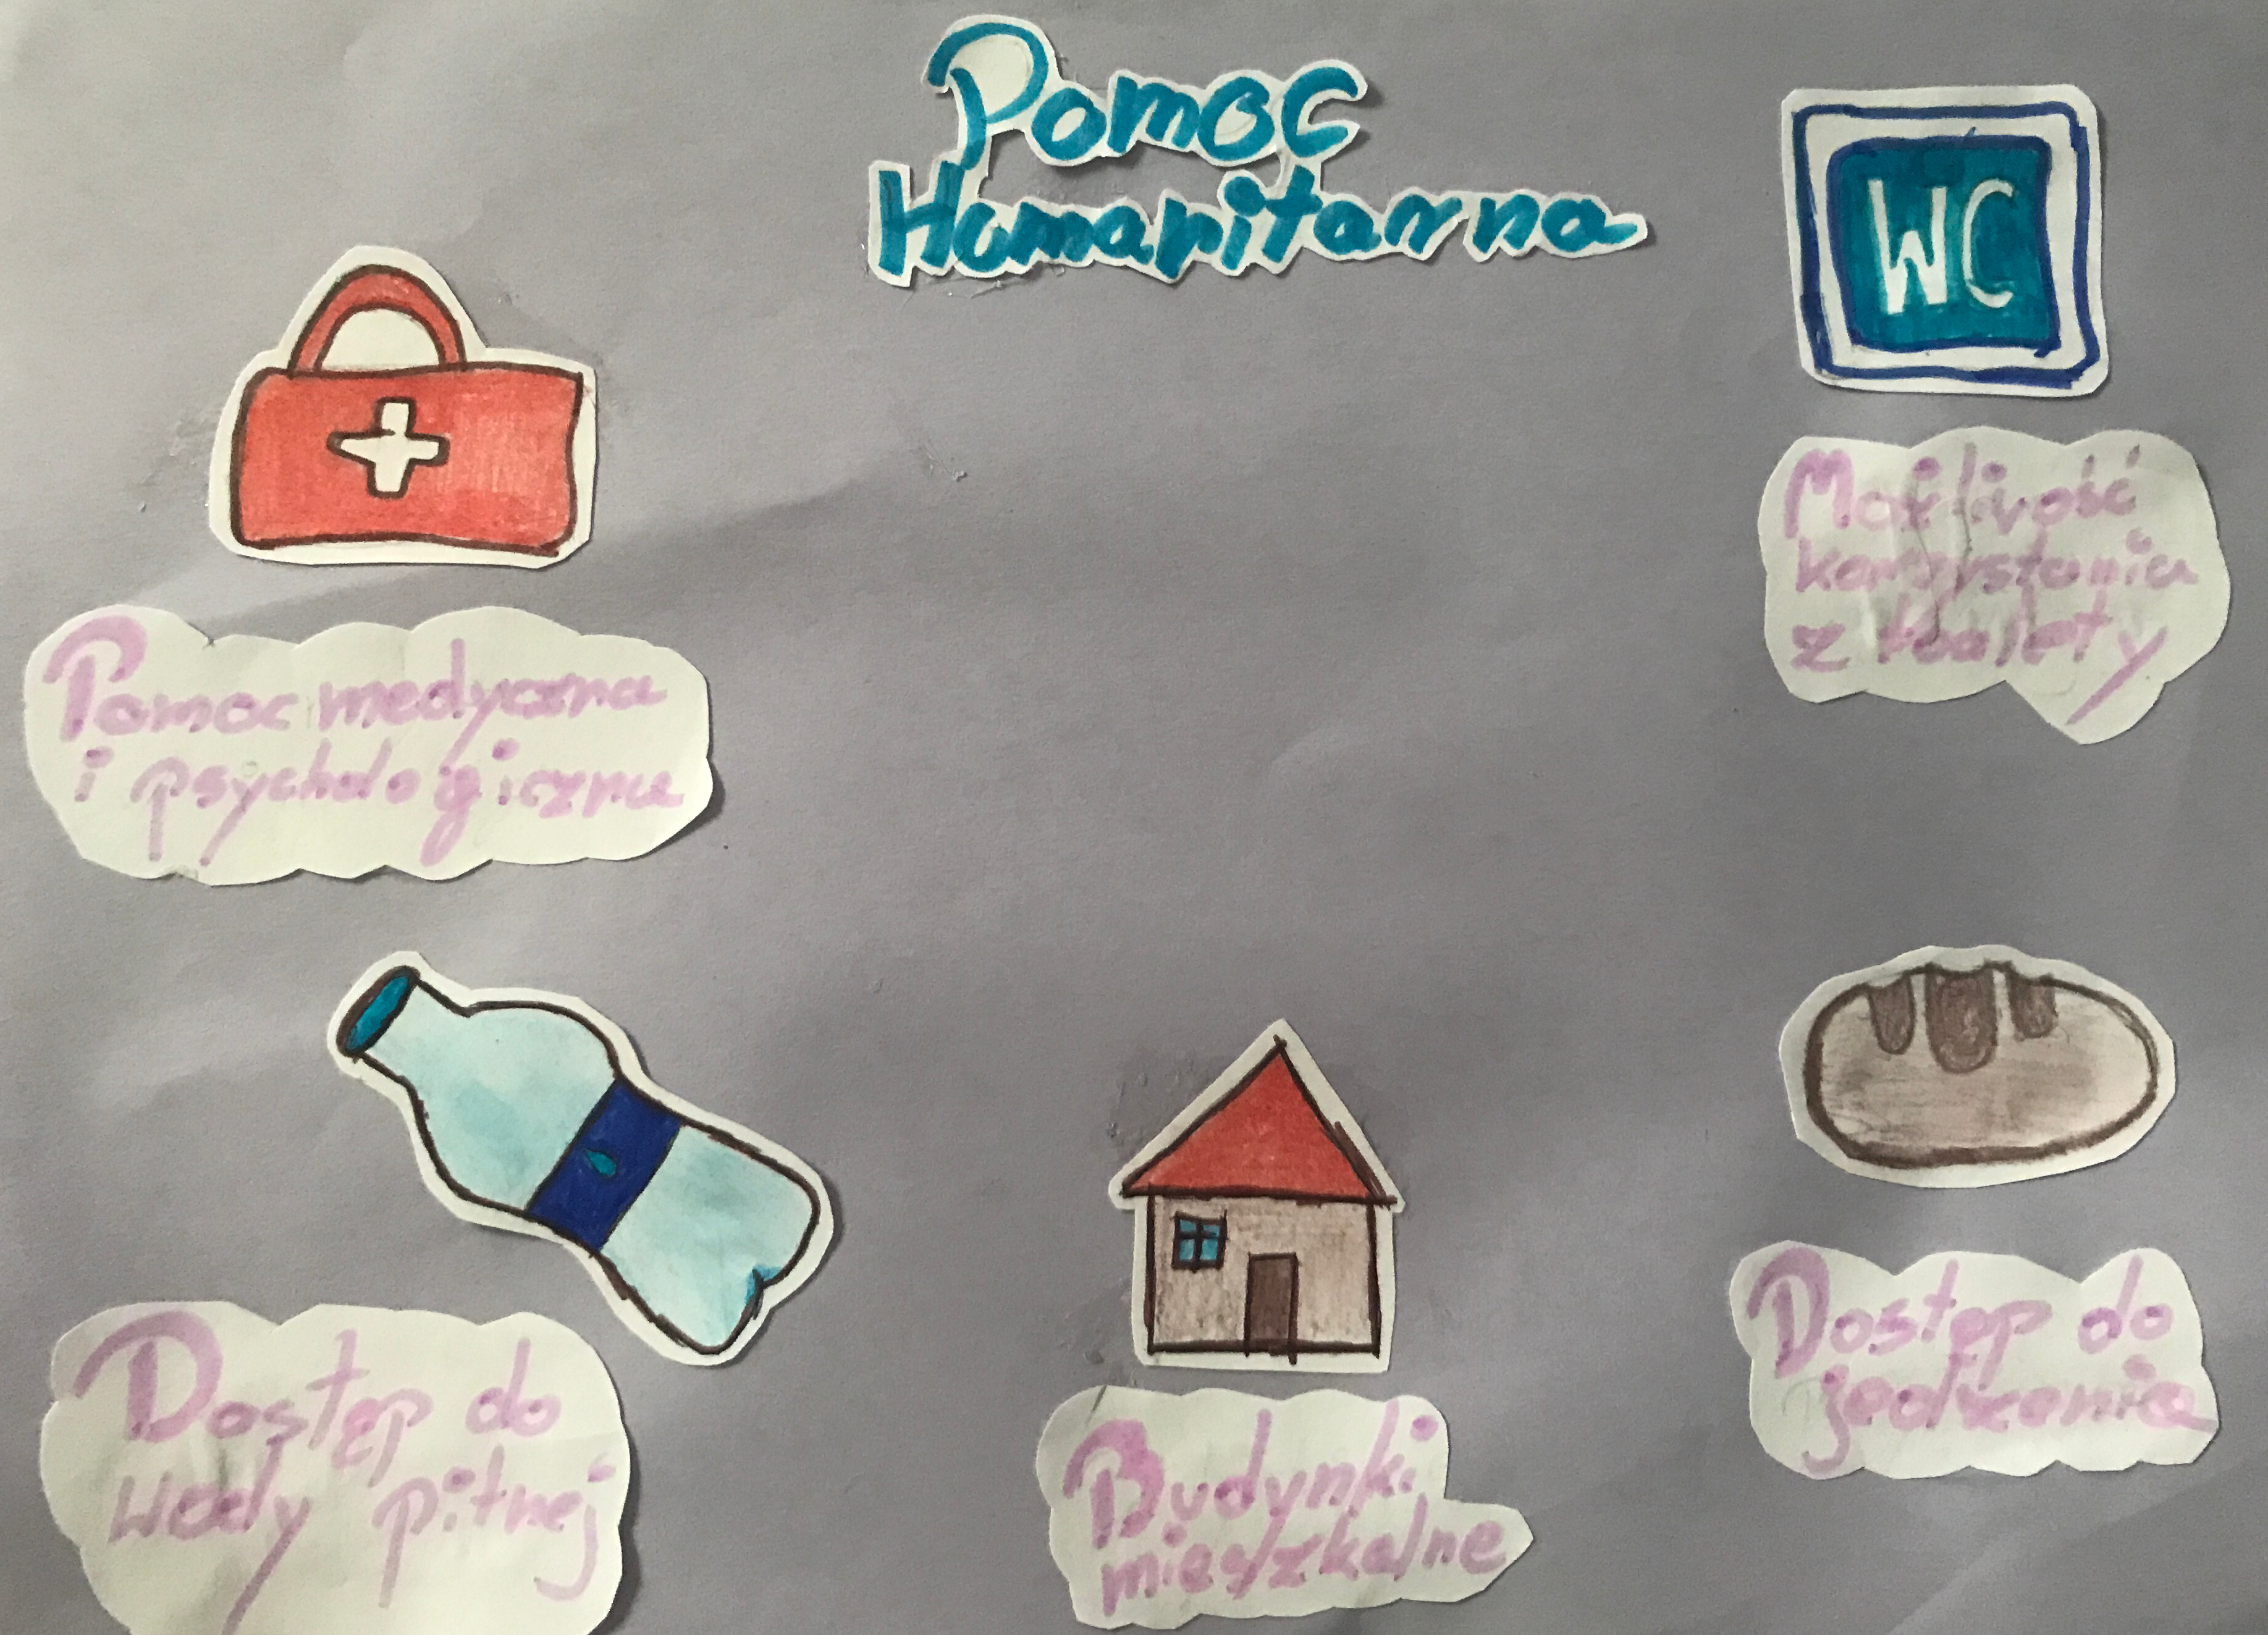 Pomoc
Humanitarna
WC
Możliwość
korzystania
z toalety
Pomoc medyczna
i psychologiczna
Dostęp do
wody pitnej
Budynki
mieszkalne
Dostęp do
jedzenia